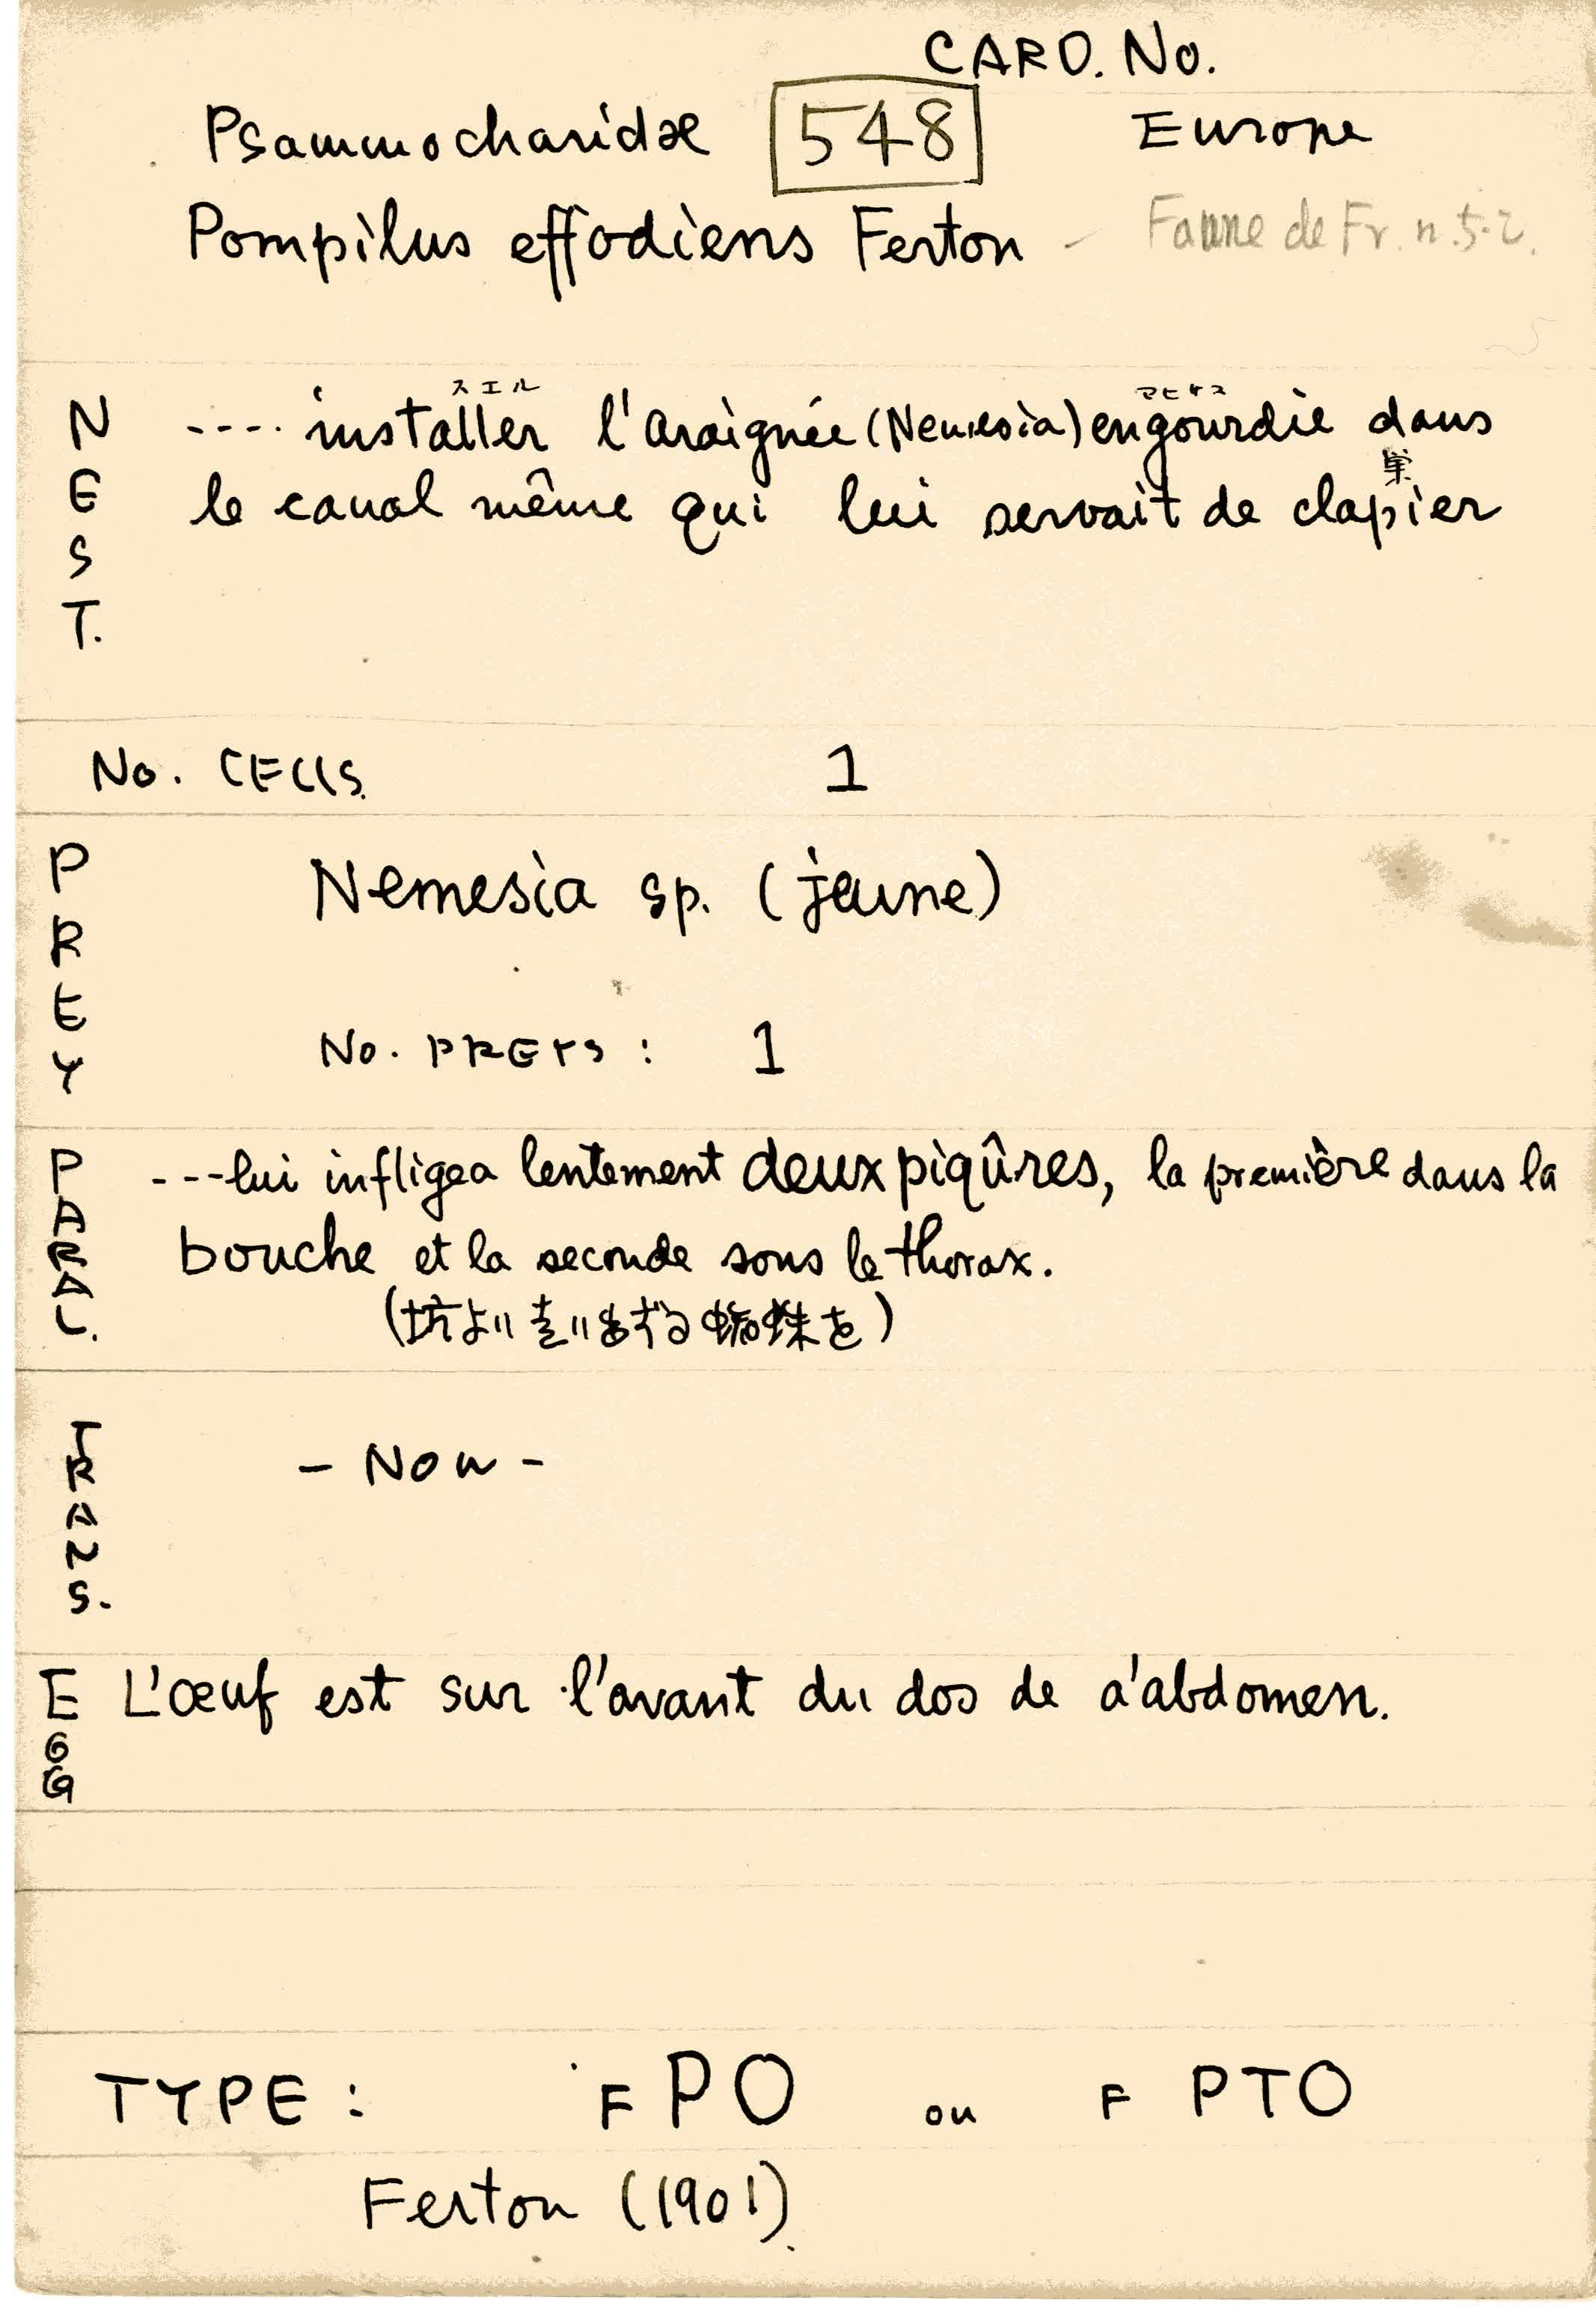 CARD. No.
Psammocharidæ 548 Europe
Pompilus effodiens Ferton - Faune de Fr. n.5-2.
スエル マヒサス
NEST. ---- installer l'araignée (Nemesia) engourdie dans
巣
le canal même qui lui servait de clapier
No. CELLS. 1
PREY Nemesia sp. (jaune)
No. PREYS : 1
PARAL. ---lui infligea lentement deux piqûres, la première dans la
bouche et la seconde sous le thorax.
(坑より走りまする蜘蛛を)
TRANS. - Non -
EGG L'œuf est sur l'avant du dos de a'abdomen.
TYPE : F PO ou F PTO
Ferton (1901)